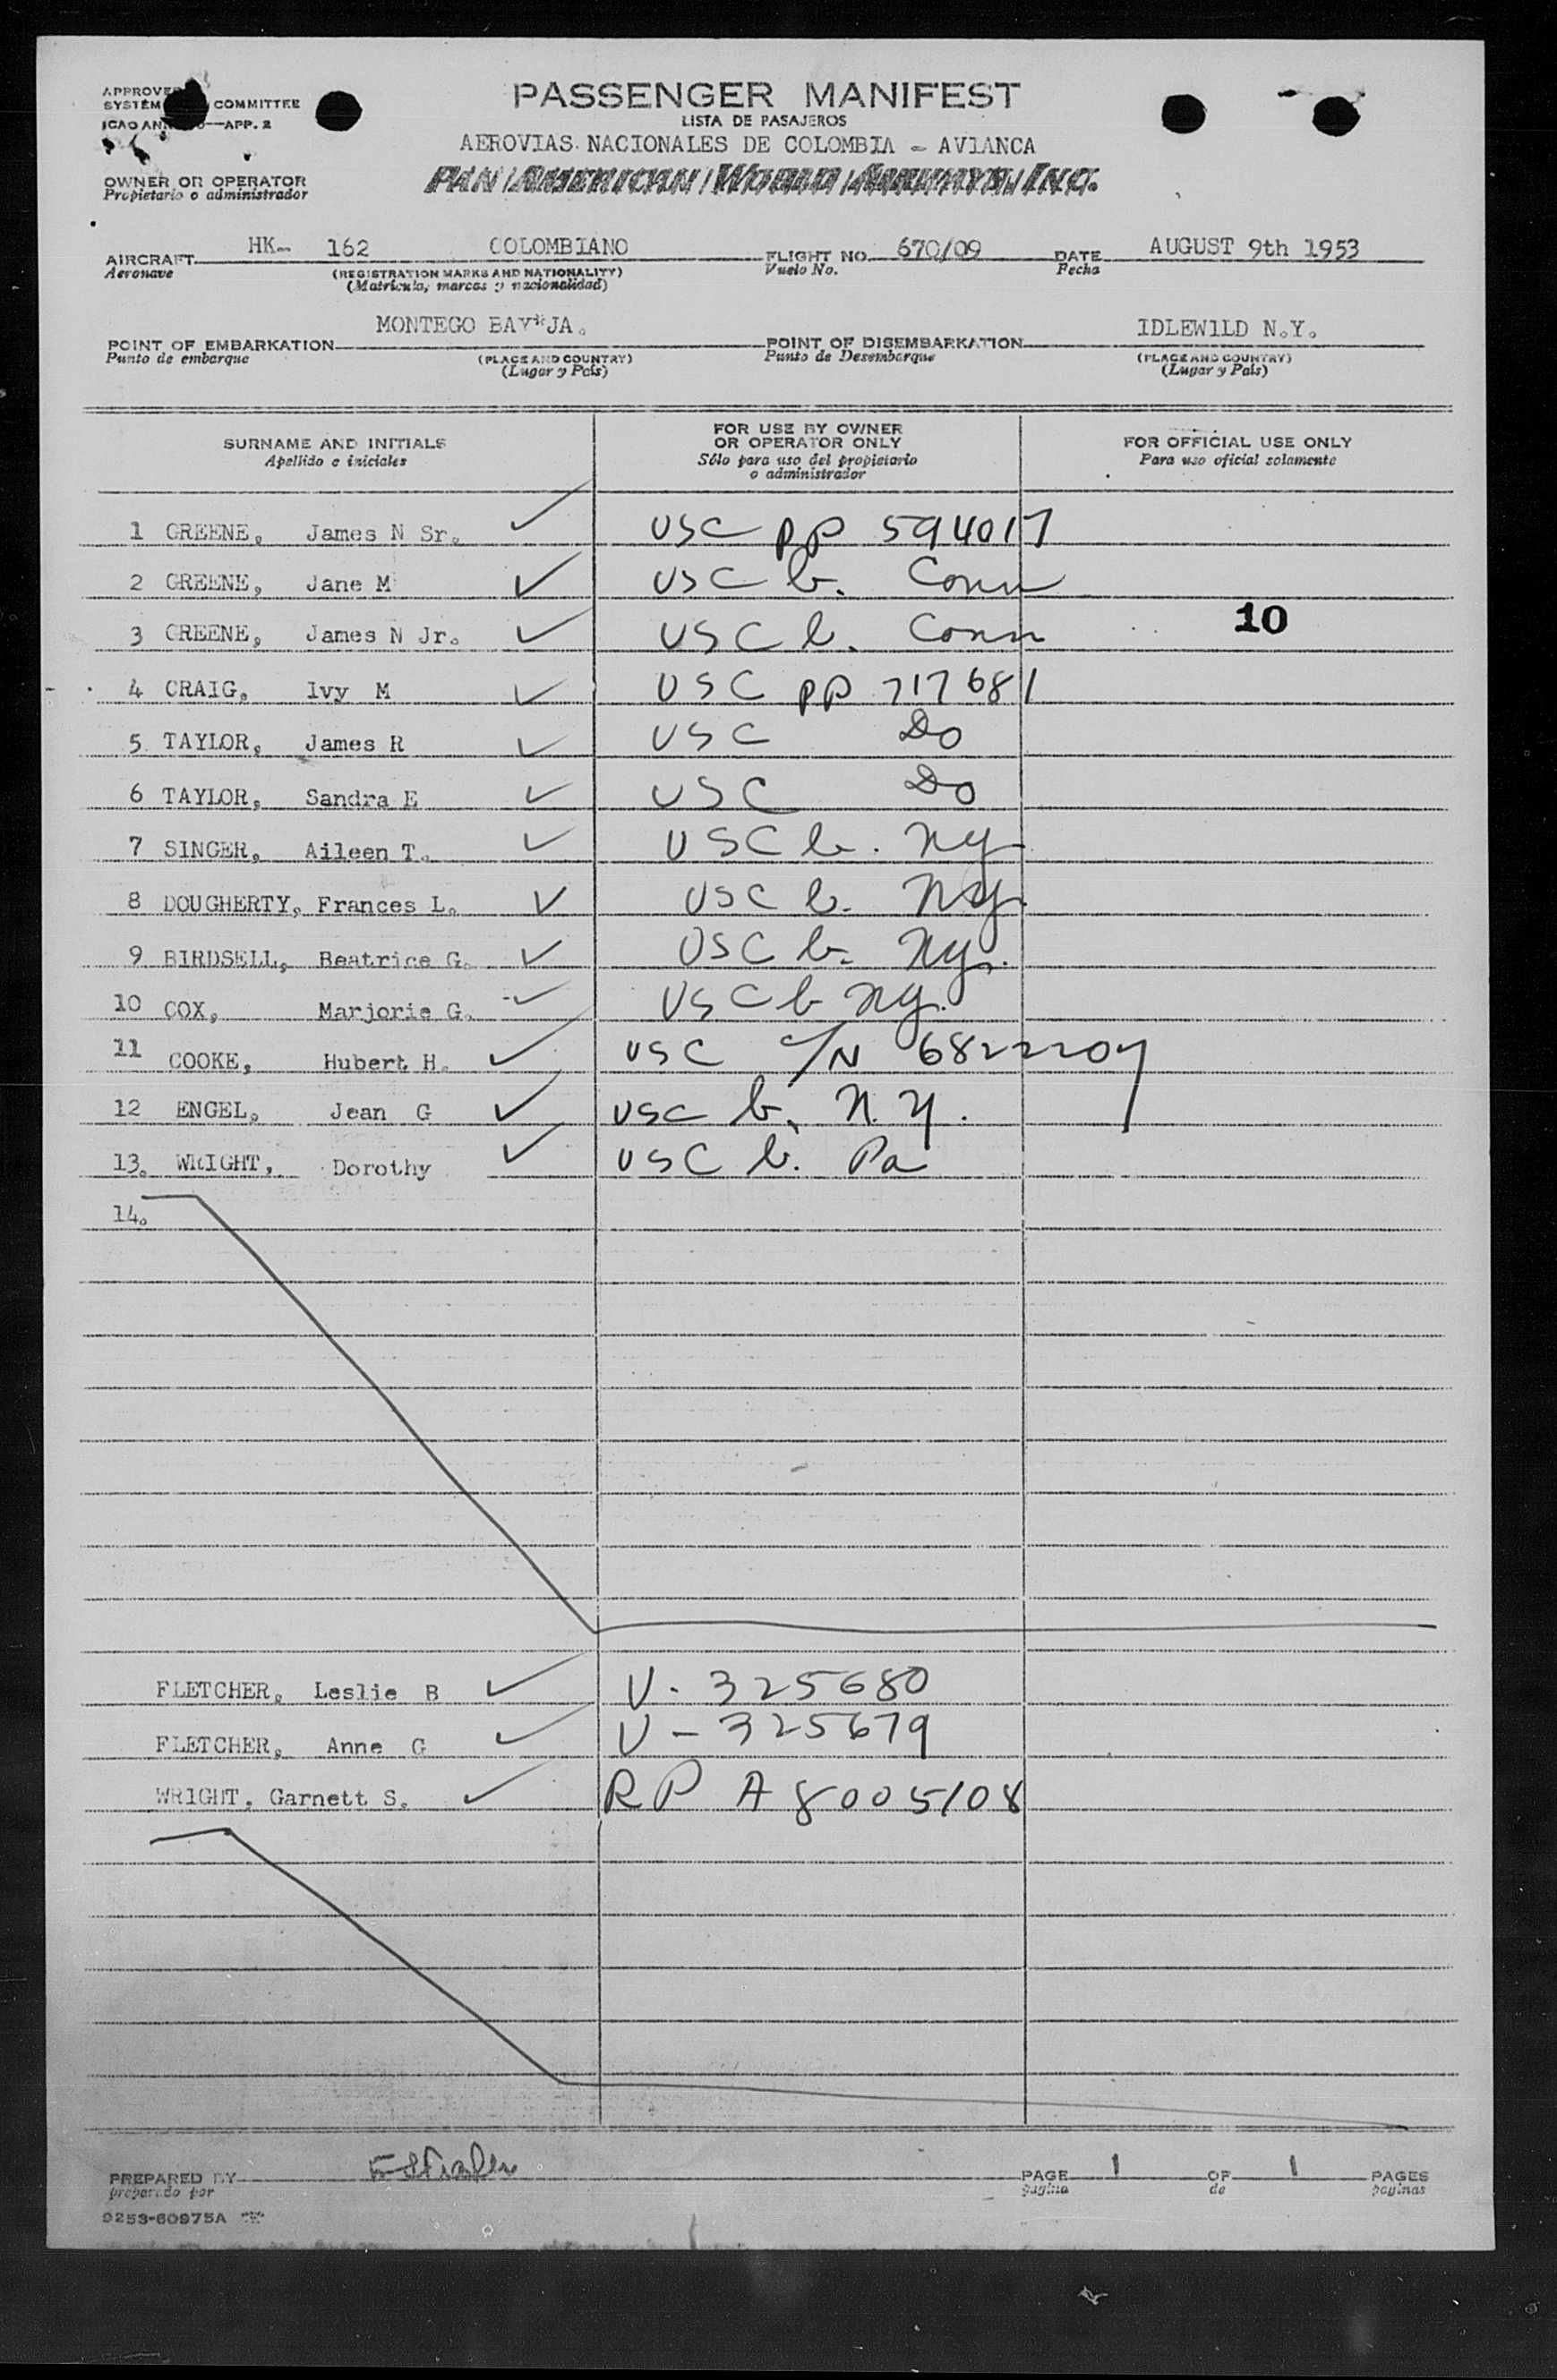 PASSENGER MANIFEST
LISTA DE PASAJEROS
AEROVIAS NACIONALES DE COLOMBIA - AVIANCA
PAN AMERICAN WORLD AIRWAYS, INC.
APPROVED
SYSTEM COMMITTEE
ICAO APP. 2
OWNER OR OPERATOR
Propietario o administrador
AIRCRAFT HK- 162 COLOMBIANO FLIGHT NO. 670/09 DATE AUGUST 9th 1953
Aeronave (REGISTRATION MARKS AND NATIONALITY) Vuelo No. Fecha
(Matricula, marcas y nacionalidad)
POINT OF EMBARKATION MONTEGO BAY*JA. POINT OF DISEMBARKATION IDLEW1LD N.Y.
Punto de embarque (PLACE AND COUNTRY) Punto de Desembarque (PLACE AND COUNTRY)
(Lugar y País) (Lugar y País)
SURNAME AND INITIALS FOR USE BY OWNER OR OPERATOR ONLY FOR OFFICIAL USE ONLY
Apellido e iniciales Sólo para uso del propietario o administrador Para uso oficial solamente
1 GREENE, James N Sr. USC pp 594017
2 GREENE, Jane M USC b. Conn
3 GREENE, James N Jr. USC b. Conn 10
4 CRAIG, Ivy M USC pp 717681
5 TAYLOR, James R USC Do
6 TAYLOR, Sandra E USC Do
7 SINGER, Aileen T. USC b. Ny
8 DOUGHERTY, Frances L. USC b. Ny.
9 BIRDSELL, Beatrice G. USC b. Ny.
10 COX, Marjorie G. USC b Ny.
11 COOKE, Hubert H. USC C/N 6822207
12 ENGEL, Jean G USC b. N.Y.
13. WRIGHT, Dorothy USC b. Pa
14.
FLETCHER, Leslie B V. 325680
FLETCHER, Anne G V - 325679
WRIGHT, Garnett S. RP A8005108
PREPARED BY PAGE 1 OF 1 PAGES
preparado por página de páginas
9253-60975A